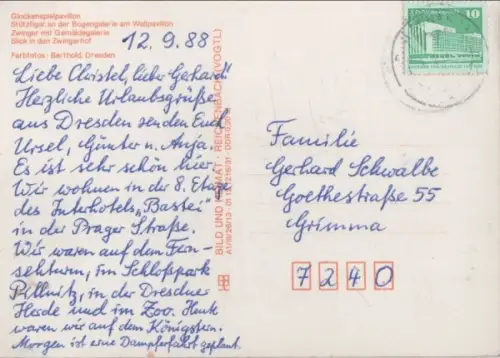 Glockenspielpavillon
Stützfigur an der Bogengalerie am Wallpavillon
Zwinger mit Gemäldegalerie
Blick in den Zwingerhof
Farbfotos: Barthold, Dresden
12. 9. 88
Liebe Christel, lieber Gerhard!
Herzliche Urlaubsgrüße
aus Dresden senden Euch
Ursel, Günter u. Anja.
Es ist sehr schön hier.
Wir wohnen in der 8. Etage
des Interhotels „Bastei“
in der Prager Straße.
Wir waren auf dem Fern-
sehturm, im Schloßpark
Pillnitz, in der Dresdner
Heide und im Zoo. Heute
waren wir auf dem Königstein.
Morgen ist eine Dampferfahrt geplant.
BILD UND HEIMAT · REICHENBACH (VOGTL)
10
Familie
Gerhard Schwalbe
Goethestraße 55
Grimma
7240